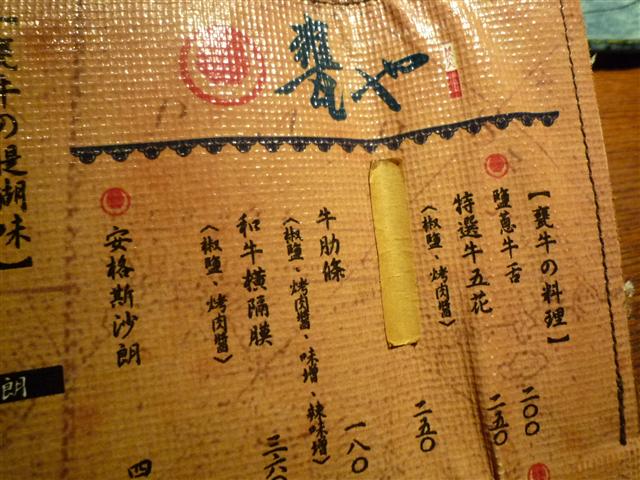 甕や
【甕牛の料理】
鹽蔥牛舌 二〇〇
特選牛五花 二五〇
〈椒鹽、烤肉醬〉
二五〇
牛肋條 一八〇
〈椒鹽、烤肉醬、味增、辣味增〉
和牛橫隔膜 三六〇
〈椒鹽、烤肉醬〉
安格斯沙朗 四
【甕牛の醍醐味】
朗